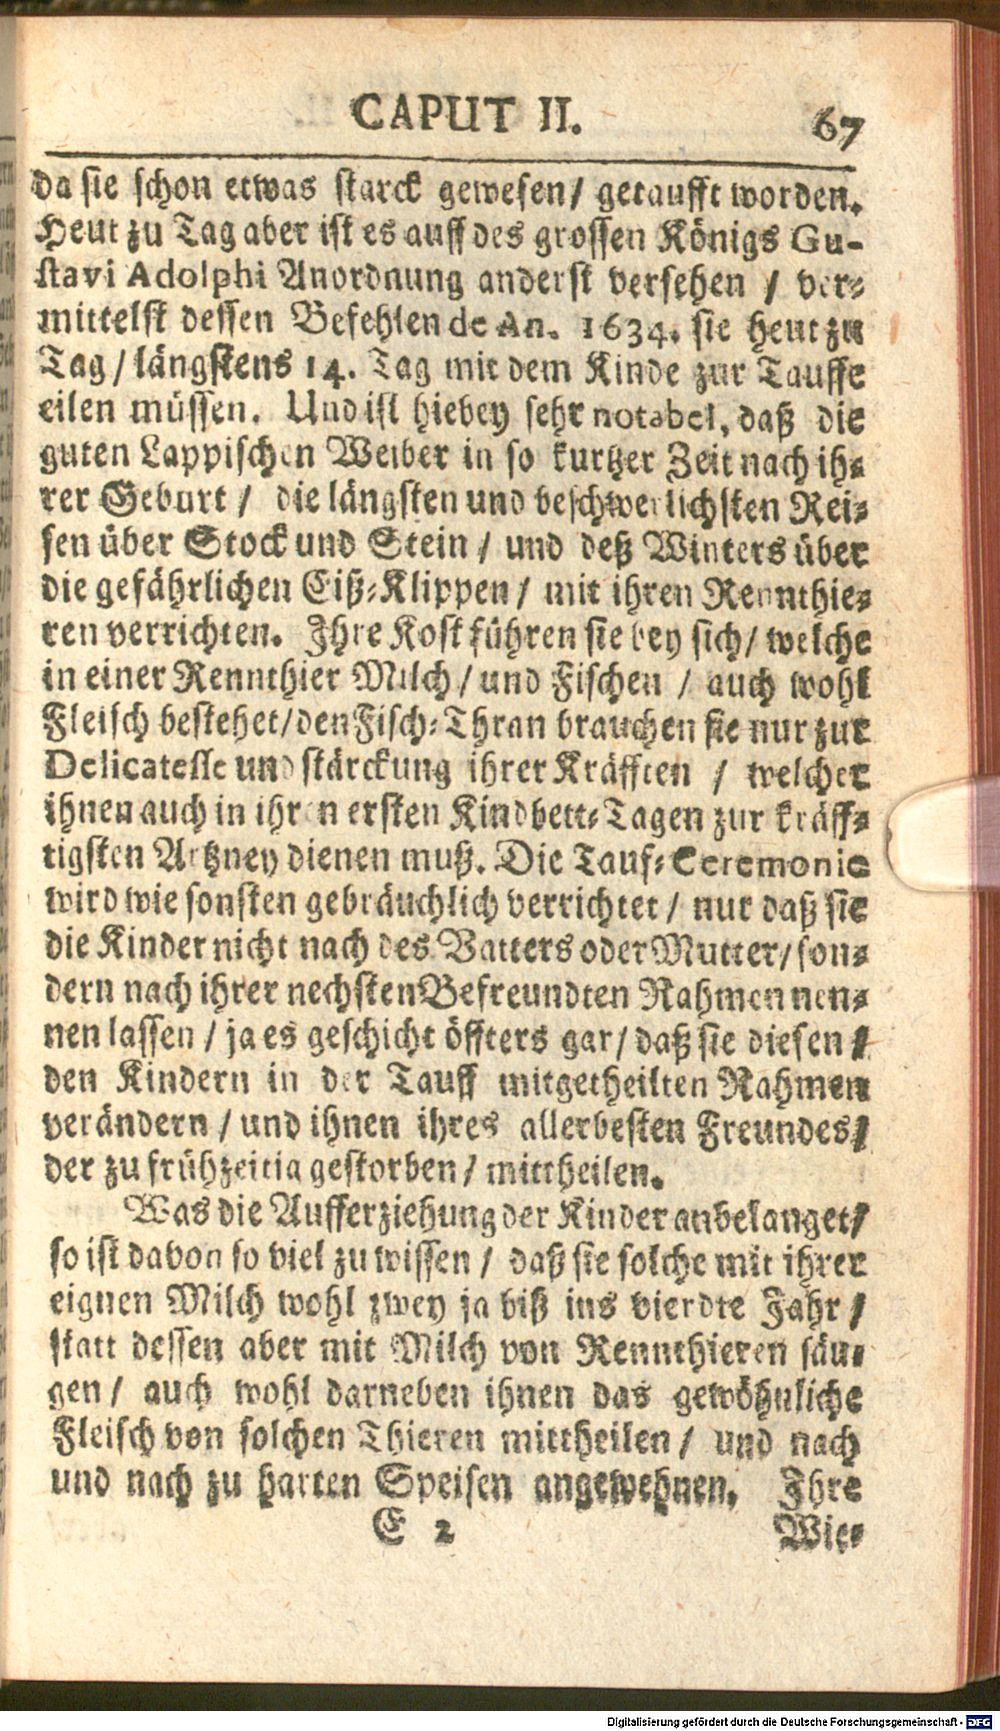 CAPUT II. 67
da sie schon etwas starck gewesen / getaufft worden.
Heut zu Tag aber ist es auff des grossen Königs Gu-
stavi Adolphi Anordnung anderst versehen / ver-
mittelst dessen Befehlen de An. 1634. sie heut zu
Tag / längstens 14. Tag mit dem Kinde zur Tauffe
eilen müssen. Und ist hiebey sehr notabel, daß die
guten Lappischen Weiber in so kurtzer Zeit nach ih-
rer Geburt / die längsten und beschwerlichsten Rei-
sen über Stock und Stein / und deß Winters über
die gefährlichen Eiß-Klippen / mit ihren Rennthie-
ren verrichten. Ihre Kost führen sie bey sich / welche
in einer Rennthier Milch / und Fischen / auch wohl
Fleisch bestehet / den Fisch-Thran brauchen sie nur zur
Delicatesse und stärckung ihrer Kräfften / welcher
ihnen auch in ihren ersten Kindbett-Tagen zur kräff-
tigsten Artzney dienen muß. Die Tauf-Ceremonie
wird wie sonsten gebräuchlich verrichtet / nur daß sie
die Kinder nicht nach des Vatters oder Mutter / son-
dern nach ihrer nechsten Befreundten Nahmen nen-
nen lassen / ja es geschicht öffters gar / daß sie diesen /
den Kindern in der Tauff mitgetheilten Nahmen
verändern / und ihnen ihres allerbesten Freundes /
der zu frühzeitig gestorben / mittheilen.
Was die Aufferziehung der Kinder anbelanget /
so ist davon so viel zu wissen / daß sie solche mit ihrer
eignen Milch wohl zwey ja biß ins vierdte Jahr /
statt dessen aber mit Milch von Rennthieren säu-
gen / auch wohl darneben ihnen das gewöhnliche
Fleisch von solchen Thieren mittheilen / und nach
und nach zu harten Speisen angewehnen. Ihre
E 2 Wie-
Digitalisierung gefördert durch die Deutsche Forschungsgemeinschaft - DFG